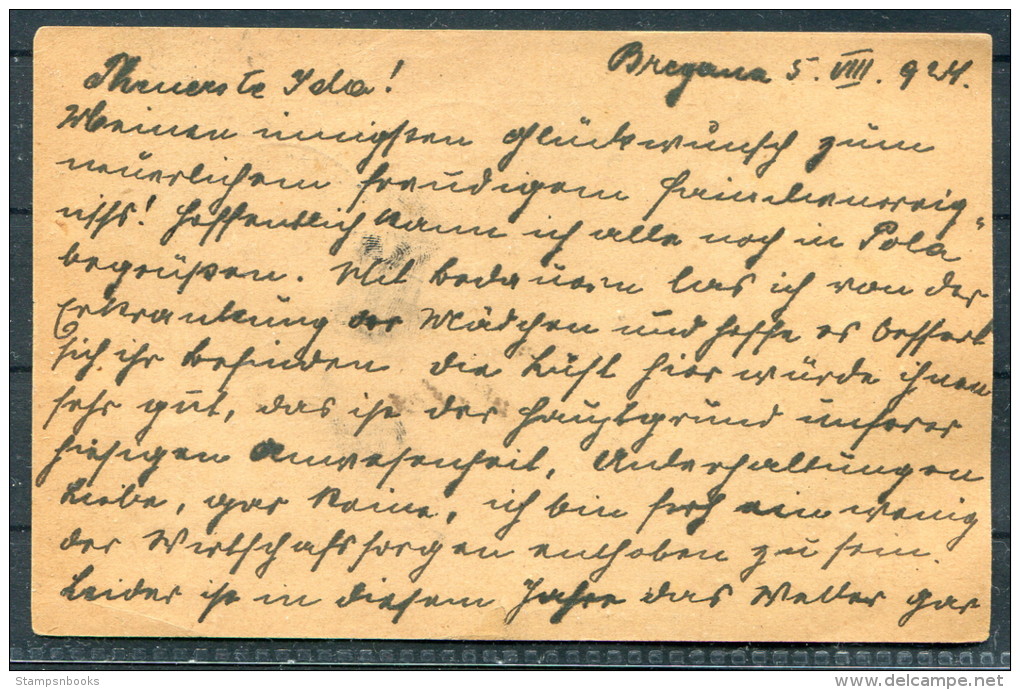 Bregana 5. VIII. 924.
Theuerste Ida!
Meinen innigsten Glückwunsch zum
neuerlichem freudigem Familienereig-
niss! Hoffentlich kann ich alle noch in Pola
begrüßen. Mit bedauern las ich von der
Erkrankung der Mädchen und hoffe es bessert
sich ihr Befinden. Die Luft hier würde ihnen
sehr gut, das ist der Hauptgrund unserer
hiesigen Anwesenheit. Unterhaltungen
Liebe, gar keine, ich bin froh ein wenig
der Wirtschaftssorgen enthoben zu sein.
Leider ist in diesem Jahre das Wetter gar
Stampsnbooks
www.delcampe.net